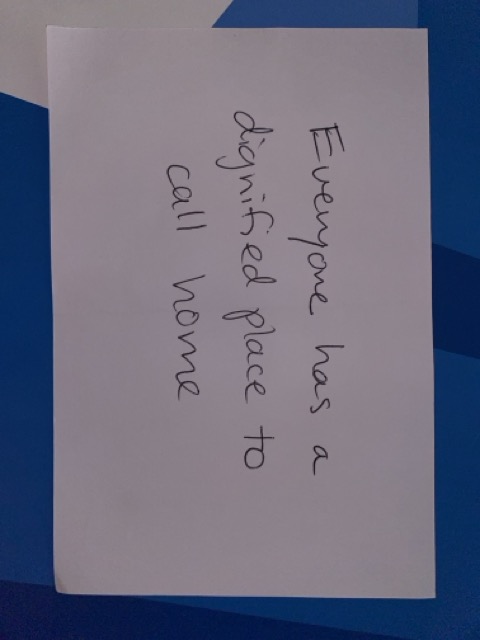 Everyone has a
dignified place to
call home